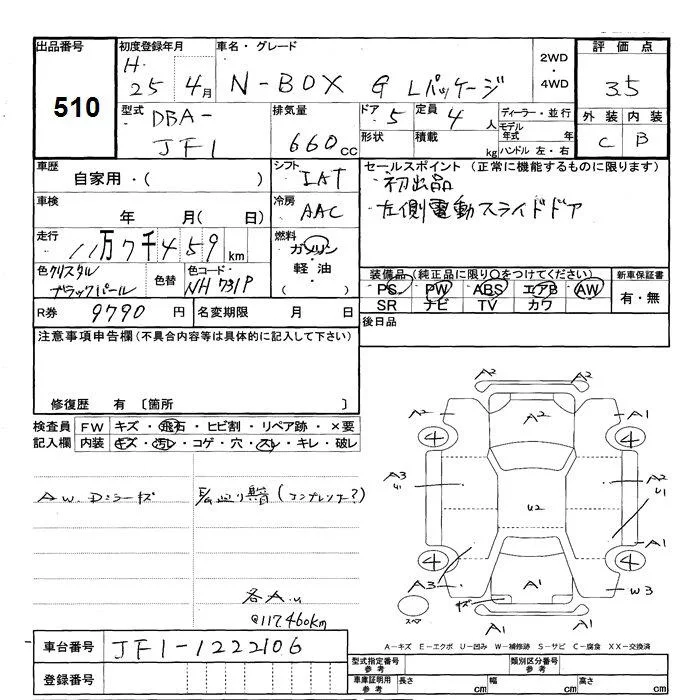 出品番号 510
初度登録年月 H.25 4月
車名・グレード N-BOX G Lパッケージ
2WD・4WD
評価点 3.5
型式 DBA-JF1
排気量 660cc
ドア 5 定員 4人
形状 積載 kg
ディーラー・並行
モデル年式 年
ハンドル 左・右
外装 内装
C B
車歴 自家用・( )
シフト IAT
セールスポイント (正常に機能するものに限ります)
・初出品
・左側電動スライドドア
車検 年 月( 日)
冷房 AAC
走行 11万7千459km
燃料 ガソリン・軽油・( )
色 クリスタルブラックパール
色替
色コード・NH731P
装備品 (純正品に限り○をつけてください)
PS PW ABS エアB AW
SR ナビ TV カワ
新車保証書
有・無
R券 9790円
名変期限 月 日
後日品
注意事項申告欄 (不具合内容等は具体的に記入して下さい)
修復歴 有 〔箇所 〕
検査員記入欄
FW キズ・飛石・ヒビ割・リペア跡・×要
内装 キズ・汚レ・コゲ・穴・スレ・キレ・破レ
AW.Dミラーキズ
各A.u
@117.460km
A2
A2 A2 A1
4 4
A3 U1
U2
A2 U1
A1
4 4
A3 A1 W3
キズ
A1 A1
スペア
A-キズ E-エクボ U-凹み W-補修跡 S-サビ C-腐食 XX-交換済
車台番号 JF1-1222106
登録番号
型式指定番号 参考
類別区分番号 参考
車庫証明用 参考 長さ cm 幅 cm 高さ cm